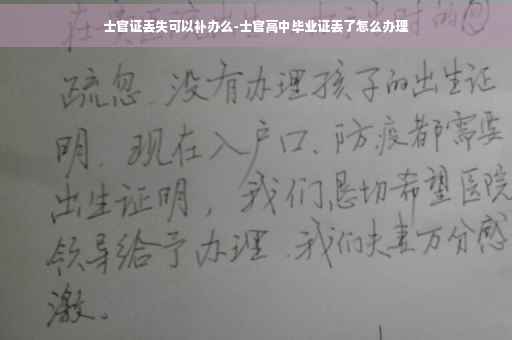 士官证丢失可以补办么-士官高中毕业证丢了怎么办理
疏忽、没有办理孩子的出生证
明、现在入户口、防疫都需要
出生证明，我们恳切希望医院
领导给予办理、我们夫妻万分感
激。